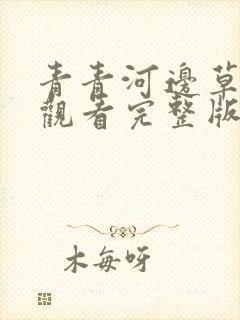 青青河邊草
觀看完整版
木每呀